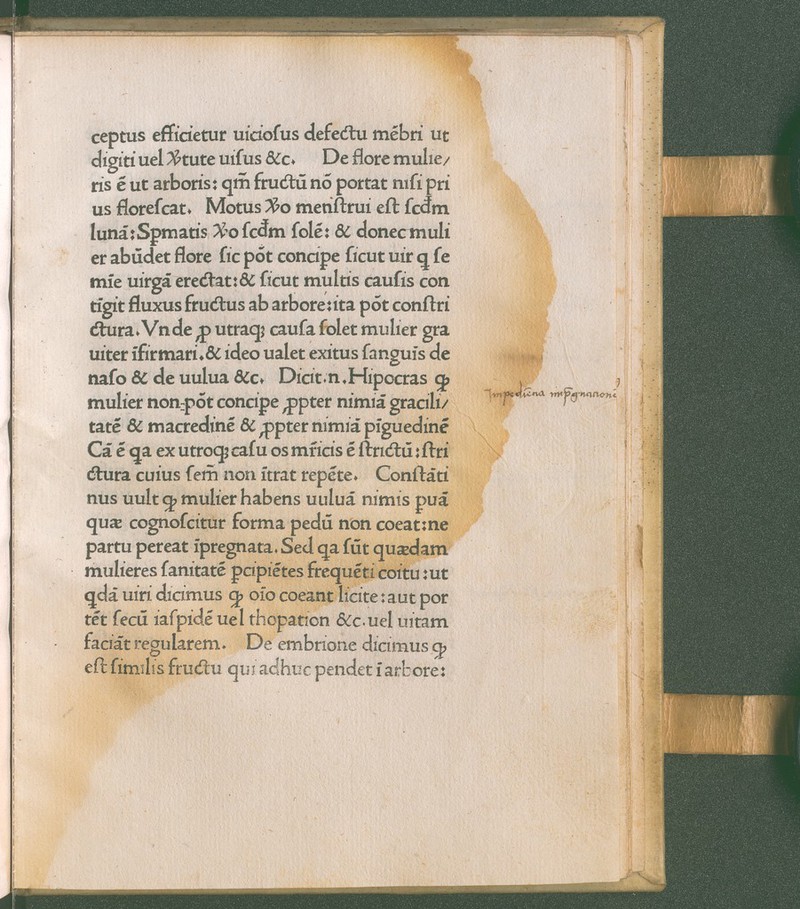 ceptus efficietur uicioſus defectu mēbri ut
digiti uel Ꝟtute uiſus &c. De flore mulie/
ris ē ut arboris: qm̄ fructū nō portat niſi pri
us floreſcat. Motus Ꝟo menſtrui eſt ſcd̄m
lunā: Spmatis Ꝟo ſcd̄m ſolē: & donec muli
er abūdet flore ſic pōt concipe ſicut uir q ſe
mīe uirgā erectat: & ſicut multis cauſis con
tīgit fluxus fructus ab arbore: ita pōt conſtri
ctura. Vnde ꝓ utraqꝫ cauſa ſolet mulier gra
uiter īfirmari. & ideo ualet exitus ſanguis de
naſo & de uulua &c. Dicit .n. Hipocras ꝙ
mulier non pōt concipe ꝓpter nimiā gracili/
tatē & macredinē & ꝓpter nimiā pīguedinē
Cā ē qa ex utroqꝫ caſu os mr̄icis ē ſtrictū: ſtri
ctura cuius ſem̄ non ītrat repēte. Conſtāti
nus uult ꝙ mulier habens uuluā nimis puā
quæ cognoſcitur forma pedū non coeat: ne
partu pereat īpregnata. Sed qa ſūt quædam
mulieres ſanitatē pcipiētes frequēti coitu: ut
qdā uiri dicimus ꝙ oīo coeant licite: aut por
tēt ſecū iaſpidē uel thopation &c. uel uitam
faciāt regularem. De embrione dicimus ꝙ
eſt ſimilis fructu qui adhuc pendet ī arbore:
Impediēcia